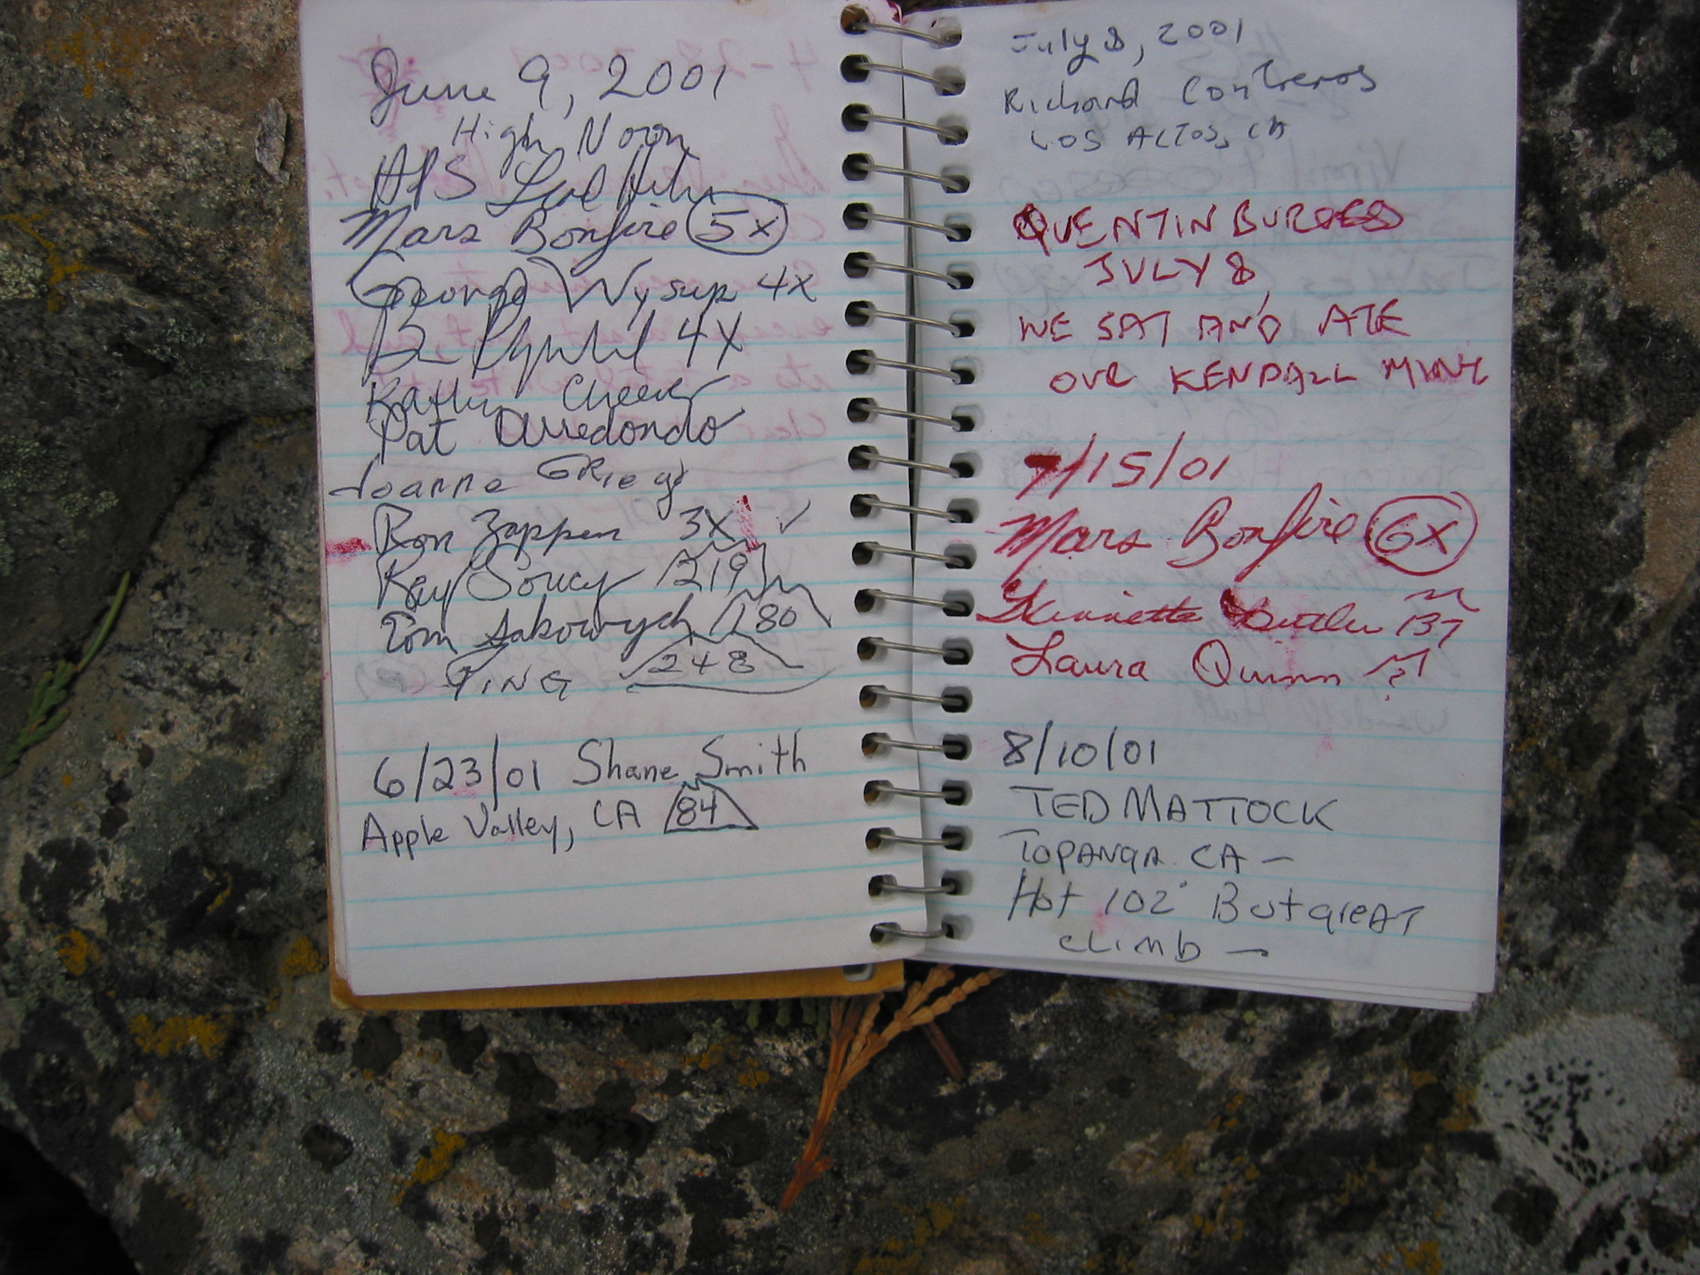 June 9, 2001
High Noon
HPS
Mars Bonfire 5x
George Wysup 4x
4X
Kathy Cheever
Pat Arredondo
Joanne Griego
Ron Zappen 3X ✓
Ray Soucy 219
Tom Sakowych 180
TING 248
6/23/01 Shane Smith
Apple Valley, CA 84
July 8, 2001
Richard Contreras
LOS ALTOS, CA
QUENTIN BURGESS
JULY 8,
WE SAT AND ATE
OUR KENDALL MINT
7/15/01
Mars Bonfire 6x
Henriette 137
Laura Quinn
8/10/01
TED MATTOCK
TOPANGA CA —
Hot 102° But greAT
climb —